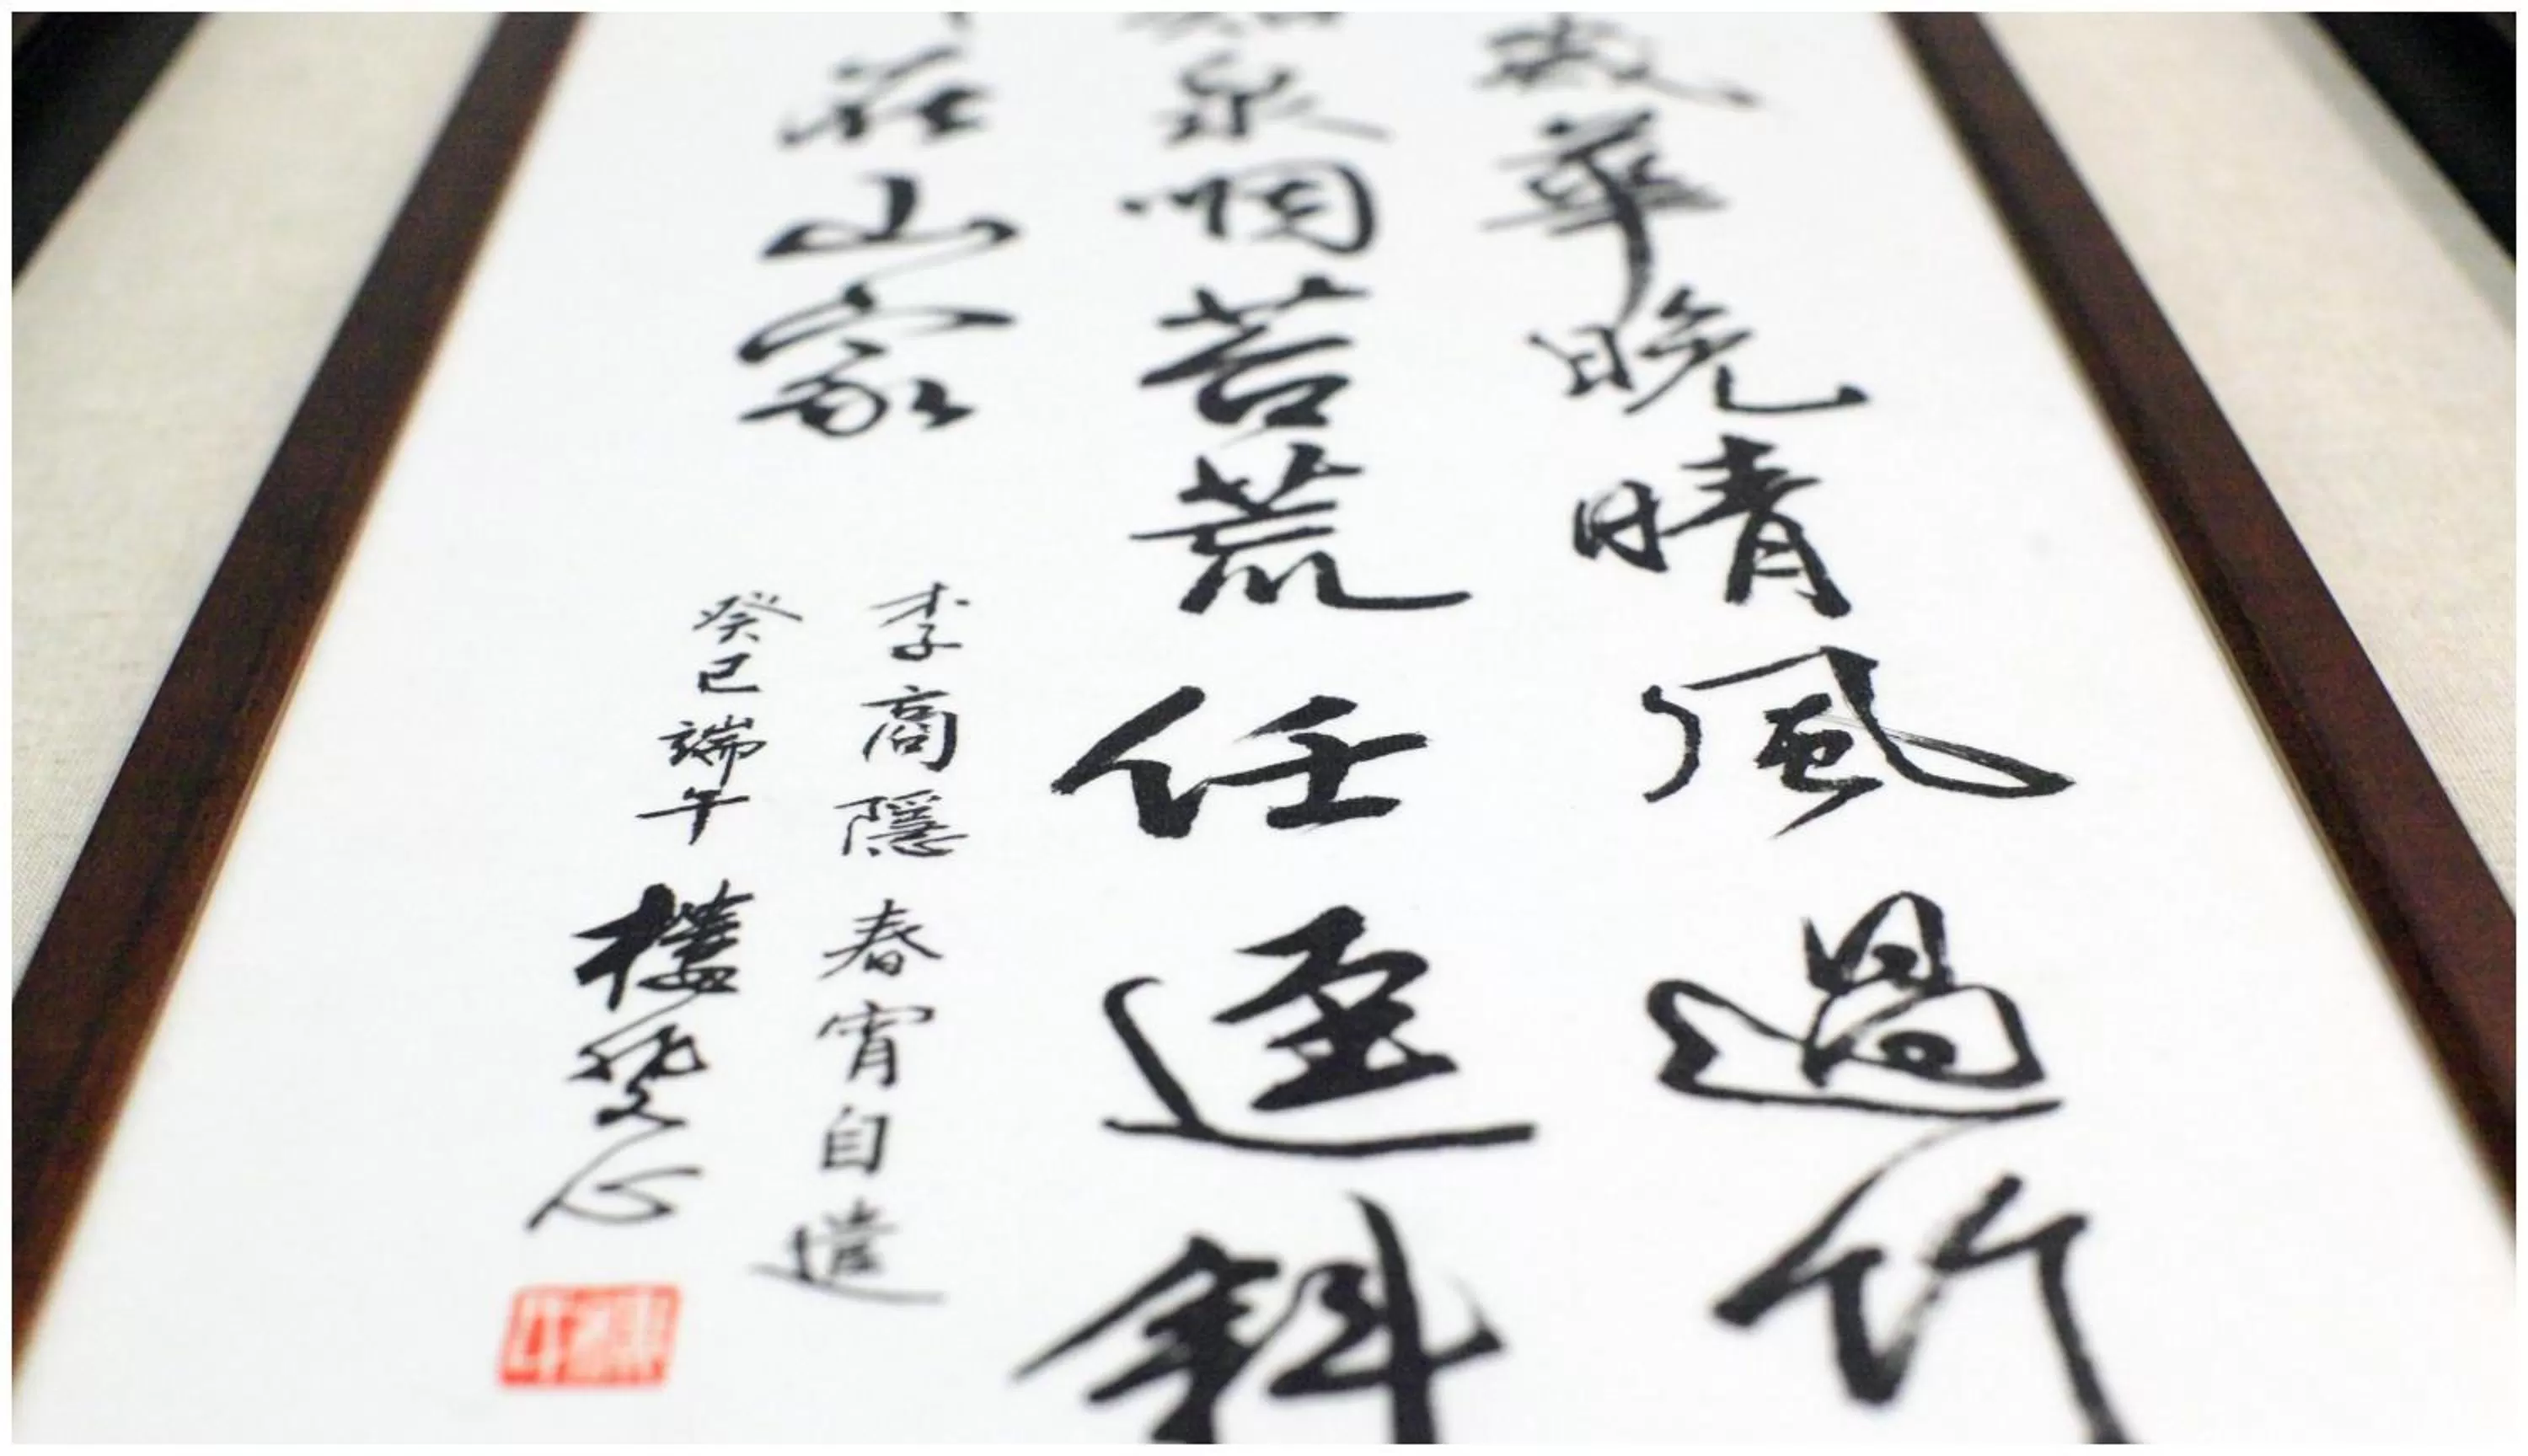 歲華晚晴風過竹
泉咽苔荒任逕斜
在山家
李商隱 春宵自遣
癸巳端午 樓 心